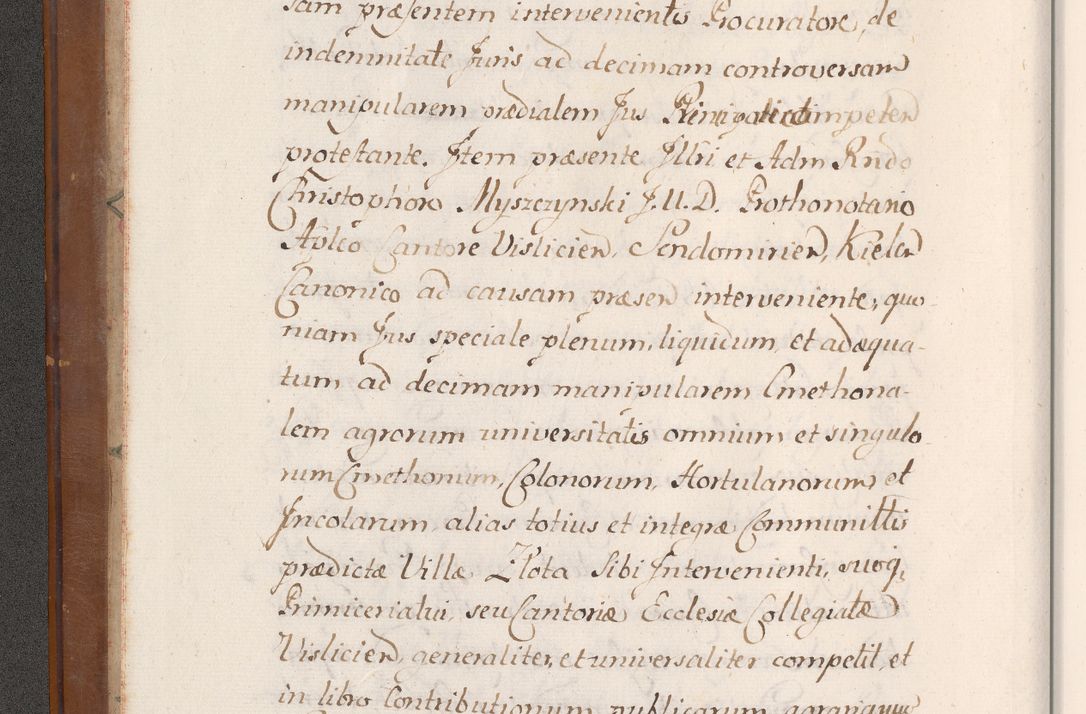 sam præsentem intervenientis Procuratore, de
indemnitate Juris ad decimam controversam
manipularem prædialem Jus
protestante. Item præsente Illri et Adm Rndo
Christophoro Myszczynski J.U.D. Prothonotario
Aplco Cantore Vislicien, Sendomirien, Kielcen
Canonico ad causam præsen interveniente, quo-
niam Jus speciale plenum, liquidum, et adæqua-
tum ad decimam manipularem Cmethona-
lem agrorum universitatis omnium et singulo-
rum Cmethonum, Colonorum, Hortulanorum et
Incolarum alias totius et integræ Communittis
prædictæ Villæ Złota Sibi Intervenienti, suoq,
Primicerialui, seu Cantoriæ Ecclesiæ Collegiatæ
Vislicien, generaliter, et universaliter competit, et
in libro Contributionum publicarum agrariarum